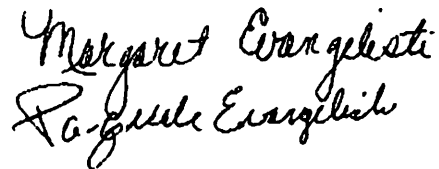 Margaret Evangelisti
Pasquale Evangelisti